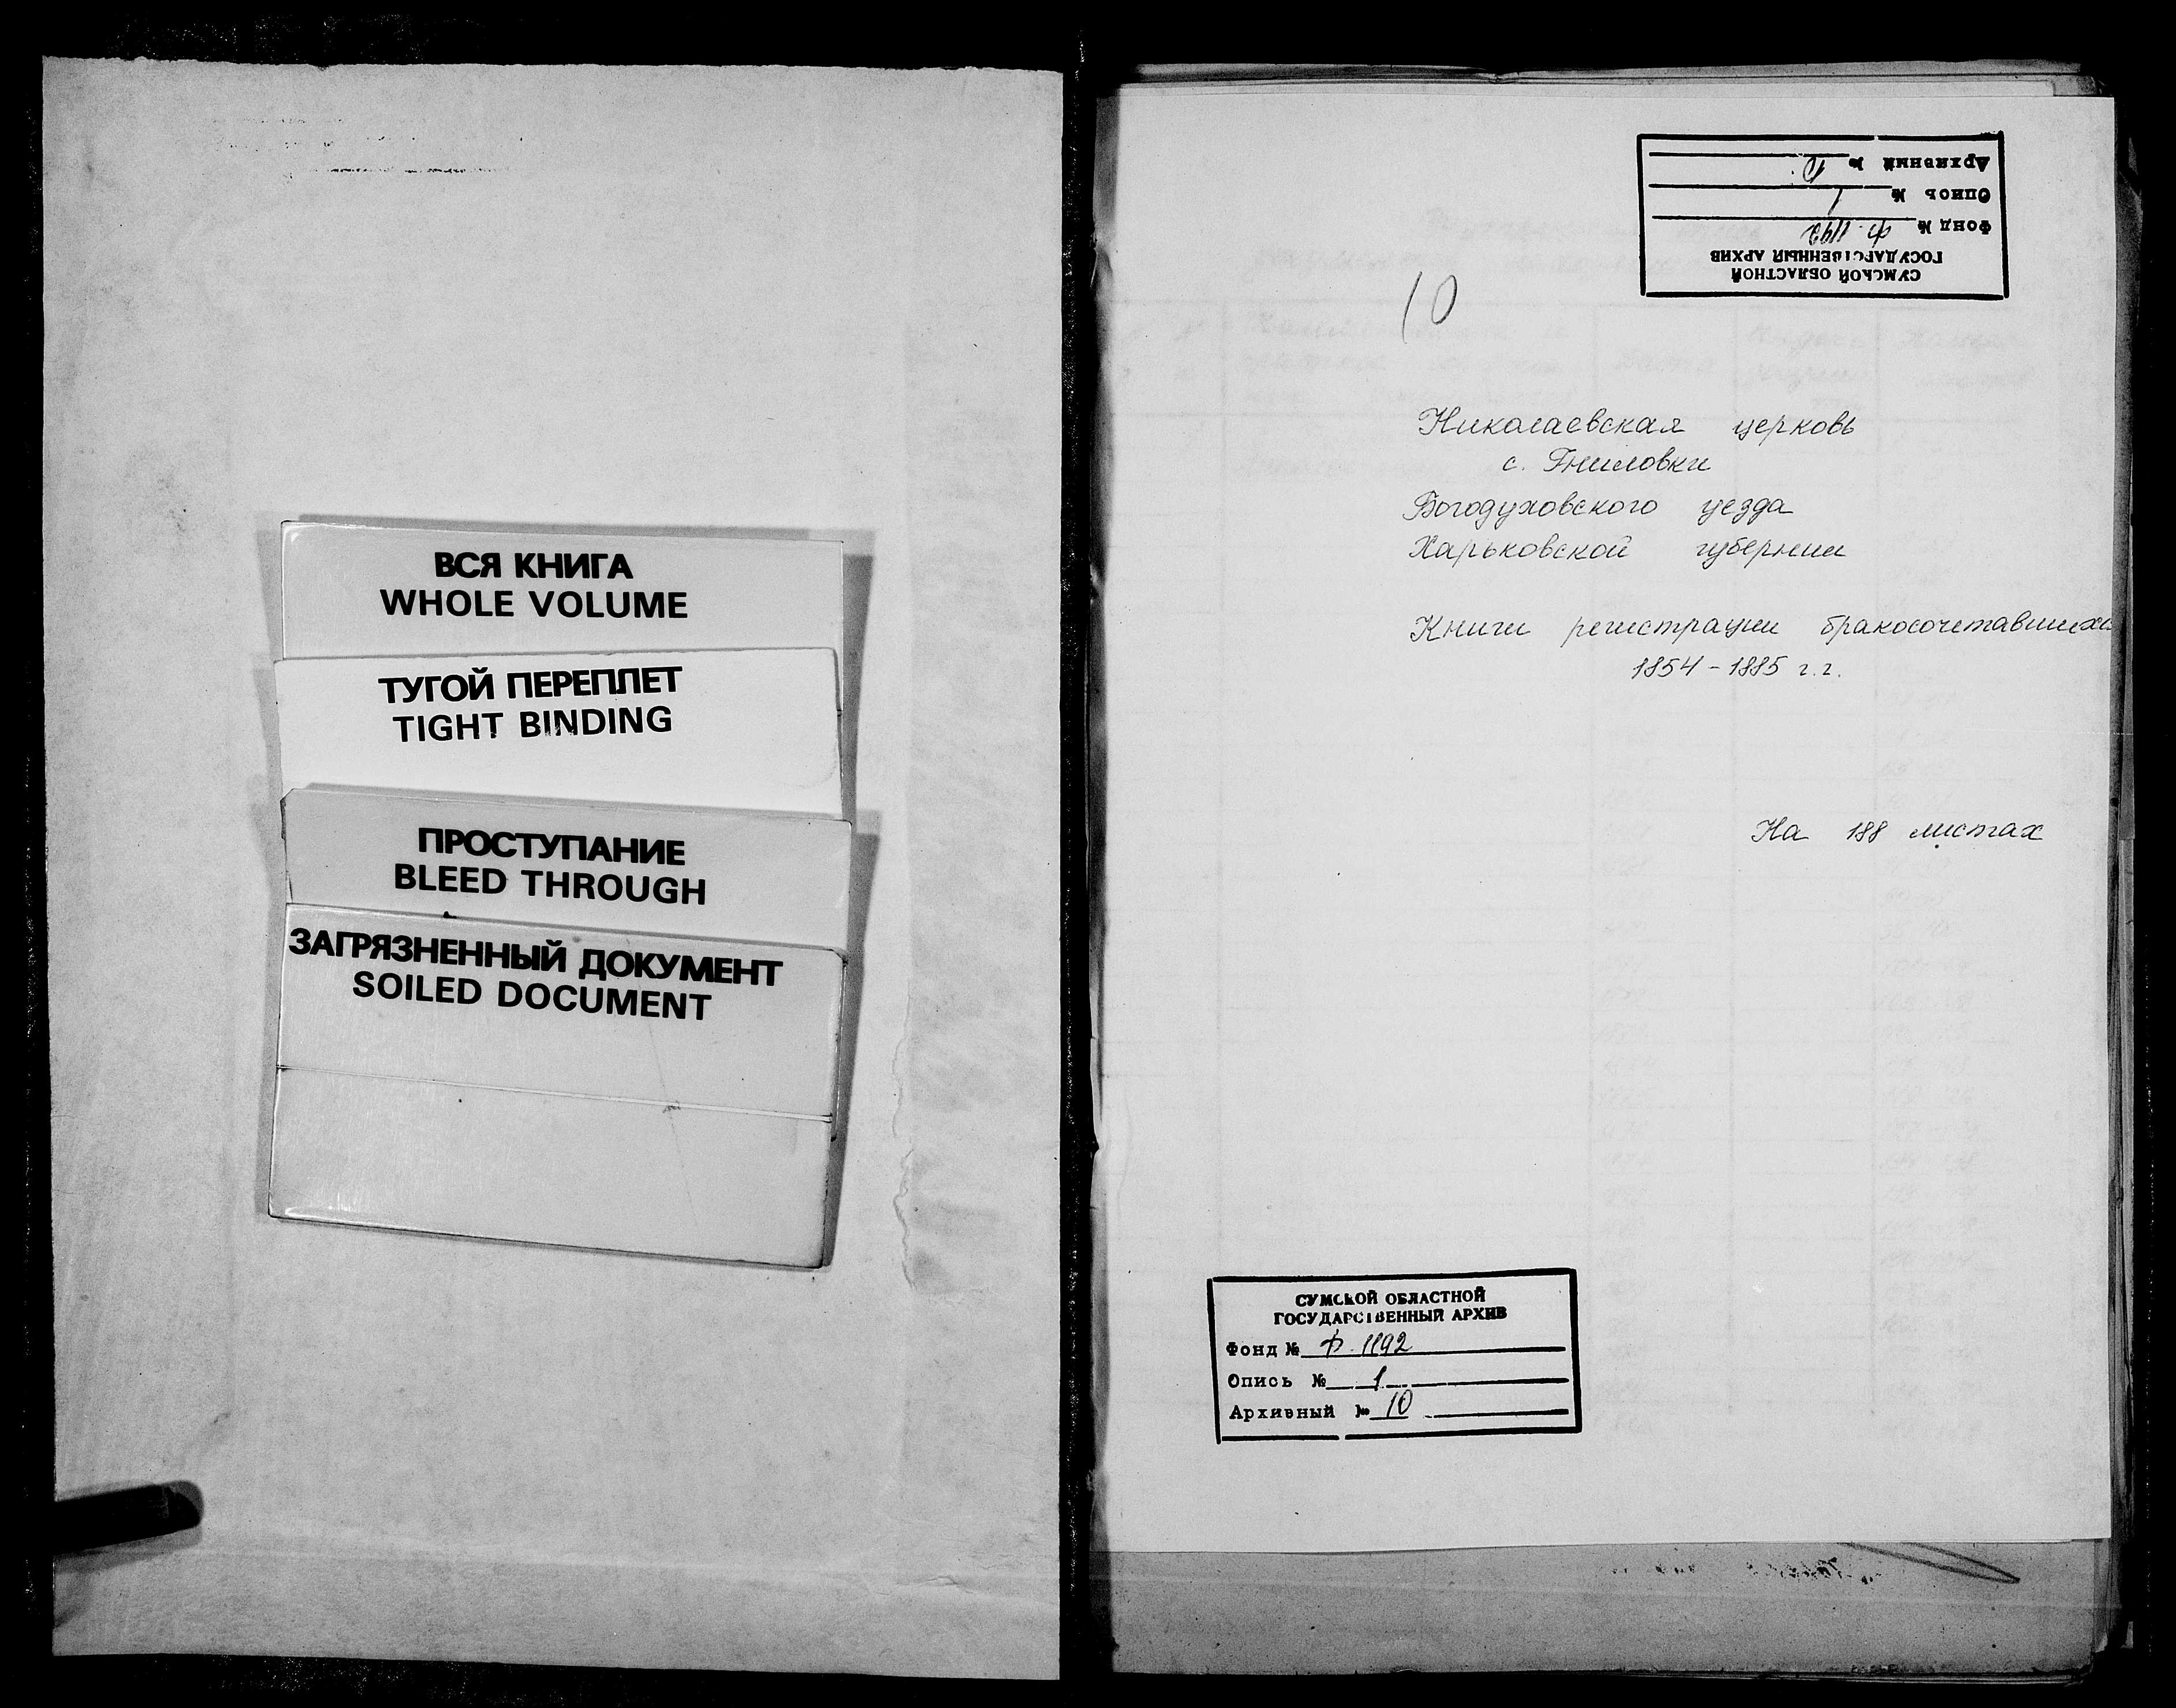 ВСЯ КНИГА
WHOLE VOLUME
ТУГОЙ ПЕРЕПЛЕТ
TIGHT BINDING
ПРОСТУПАНИЕ
BLEED THROUGH
ЗАГРЯЗНЕННЫЙ ДОКУМЕНТ
SOILED DOCUMENT
СУМСКОЙ ОБЛАСТНОЙ
ГОСУДАРСТВЕННЫЙ АРХИВ
Фонд № Ф. 1192
Опись № 1
Архивный № 10
10
Николаевская церковь
с. Гниловки
Богодуховского уезда
Харьковской губернии
Книги регистрации бракосочетавшихс
1854 - 1885 г.г.
На 188 листах
СУМСКОЙ ОБЛАСТНОЙ
ГОСУДАРСТВЕННЫЙ АРХИВ
Фонд № Ф. 1192
Опись № 1
Архивный № 10